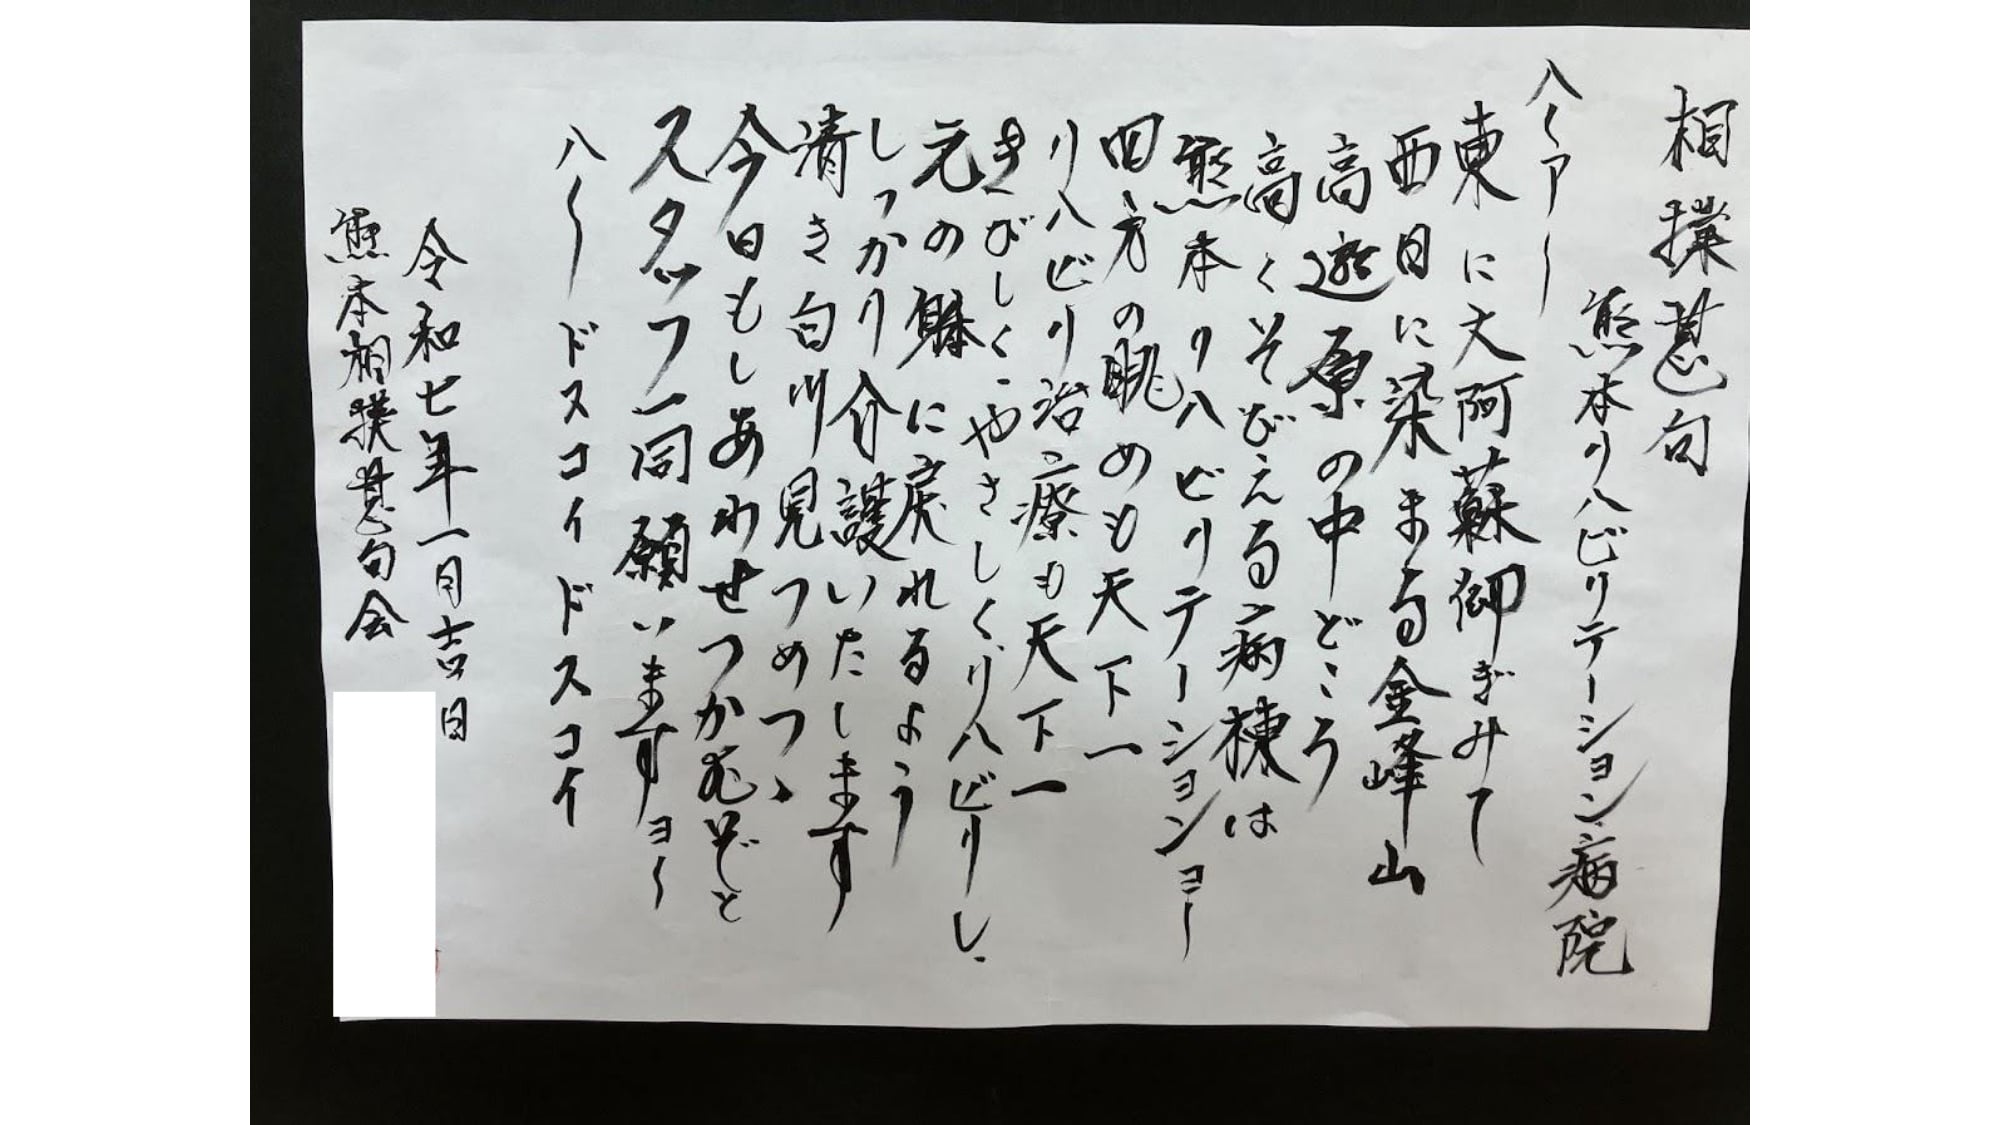 相撲甚句
熊本リハビリテーション病院
ハ〜アー
東に大阿蘇仰ぎみて
西日に染まる金峰山
高遊原の中どころ
高くそびえる病棟は
熊本リハビリテーションヨー
四方の眺めも天下一
リハビリ治療も天下一
きびしく、やさしく、リハビリし、
元の躰に戻れるよう
しっかり介護いたします
清き白川見つめつゝ
今日もしあわせつかむぞと
スタッフ一同願いますヨ〜
ハ〜 ドスコイ ドスコイ
令和七年一月吉日
熊本相撲甚句会